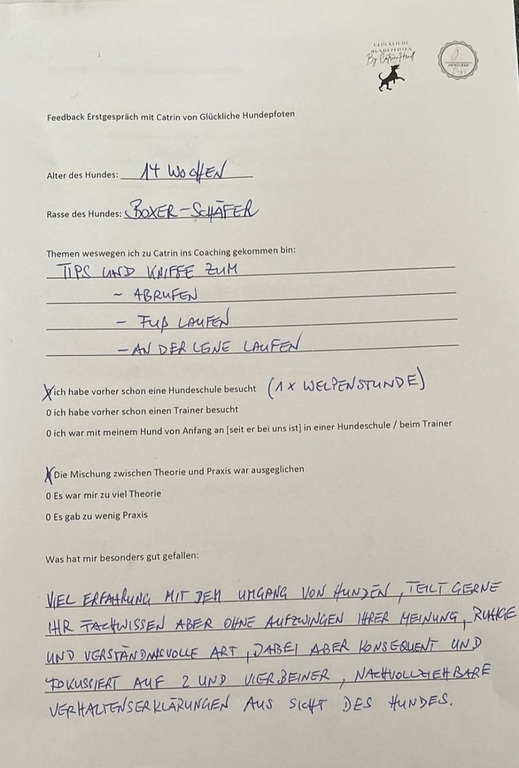 GLÜCKLICHE
HUNDEPFOTEN
Feedback Erstgespräch mit Catrin von Glückliche Hundepfoten
Alter des Hundes: 14 WOCHEN
Rasse des Hundes: BOXER-SCHÄFER
Themen weswegen ich zu Catrin ins Coaching gekommen bin:
TIPS UND KNIFFE ZUM
- ABRUFEN
- FUß LAUFEN
- AN DER LEINE LAUFEN
X ich habe vorher schon eine Hundeschule besucht (1 x WELPENSTUNDE)
0 ich habe vorher schon einen Trainer besucht
0 ich war mit meinem Hund von Anfang an [seit er bei uns ist] in einer Hundeschule / beim Trainer
X Die Mischung zwischen Theorie und Praxis war ausgeglichen
0 Es war mir zu viel Theorie
0 Es gab zu wenig Praxis
Was hat mir besonders gut gefallen:
VIEL ERFAHRUNG MIT DEM UMGANG VON HUNDEN, TEILT GERNE
IHR FACHWISSEN ABER OHNE AUFZWINGEN IHRER MEINUNG, RUHIGE
UND VERSTÄNDNISVOLLE ART, DABEI ABER KONSEQUENT UND
FOKUSSIERT AUF 2 UND VIERBEINER, NACHVOLLZIEHBARE
VERHALTENSERKLÄRUNGEN AUS SICHT DES HUNDES.